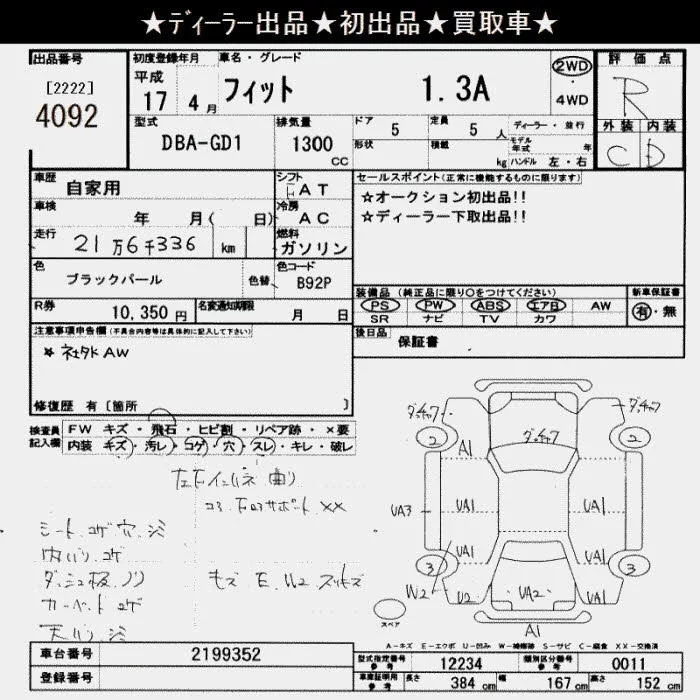 ★ディーラー出品★初出品★買取車★
出品番号
[2222]
4092
初度登録年月
平成
17 4 月
車名・グレード
フィット 1.3A
2WD
・
4WD
評価点
R
外装 内装
C D
型式
DBA-GD1
排気量
1300
CC
ドア 5
定員 5 人
形状
積載 kg
ディーラー・並行
モデル年式 年
ハンドル 左・右
車歴 自家用
シフト
F AT
車検 年 月( 日)
冷房
AC
走行 21万6千336 km
燃料
ガソリン
色 ブラックパール
色替
色コード
B92P
セールスポイント(正常に機能するものに限ります)
★オークション初出品!!
★ディーラー下取出品!!
装備品(純正品に限り○をつけてください)
PS PW ABS エアB AW
SR ナビ TV カワ
新車保証書
有・無
R券 10,350円
名変通知期限 月 日
後日品
保証書
注意事項申告欄(不具合内容等は具体的に記入して下さい)
* 社外AW
修復歴 有〔箇所 〕
検査員
記入欄
FW キズ・飛石・ヒビ割・リペア跡・×要
内装 キズ・汚レ・コゲ・穴・スレ・キレ・破レ
コアサポート XX
シート コゲ 穴 シミ
内ハリ コゲ
ダッシュ板 ノリ
カーペット コゲ
天ハリ シミ
E U2
2
2
3
3
A1
UA3
UA1
UA1
UA1
UA1
W2
U2
UA2
U2
A1
スペア
A−キズ E−エクボ U−凹み W−補修跡 S−サビ C−腐食 XX−交換済
車台番号 2199352
登録番号
型式指定番号
参考
12234
類別区分番号
参考
0011
車庫証明用
参考
長さ 384 cm
幅 167 cm
高さ 152 cm